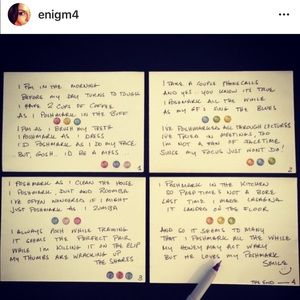 enigm4
I PM IN THE MORNING
BEFORE MY DAY TURNS TO TOUGH
I HAVE 2 CUPS OF COFFEE
AS I POSHMARK IN THE BUFF
I PM AS I BRUSH MY TEETH
I POSHMARK AS I DRESS
I'D POSHMARK AS I DO MY FACE
BUT GOSH. I'D BE A MESS
1
I TAKE A COUPLE PHONECALLS
AND YES - YOU KNOW ITS TRUE
I POSHMARK ALL THE WHILE
AS MY BFF SING THE BLUES
I'VE POSHMARKED ALL THROUGH LECTURES
I'VE TRIED IN MEETINGS, TOO
I'M NOT A FAN OF FACETIME
SINCE MY FOCUS JUST WONT DO!
2
I POSHMARK AS I CLEAN THE HOUSE
I POSHMARK, DUST AND ROOMBA
I'VE OFTEN WONDERED IF I MIGHT
JUST POSHMARK AS I ZUMBA
I ALWAYS POSH WHILE TANNING
IT SEEMS THE PERFECT PAIR
WHILE I'M KISSING IT ON THE FLIP
MY THUMBS ARE WRACKING UP
THE SHARES
3
I POSHMARK IN THE KITCHEN
SO PREP TIME'S NOT A BORE
LAST TIME I MADE LASAGNA
IT LANDED ON THE FLOOR
AND SO IT SEEMS TO MANY
THAT I POSHMARK ALL THE WHILE
MY HONEY MAY GET WARY
BUT HE LOVES MY POSHMARK
SMILE
THE END
4